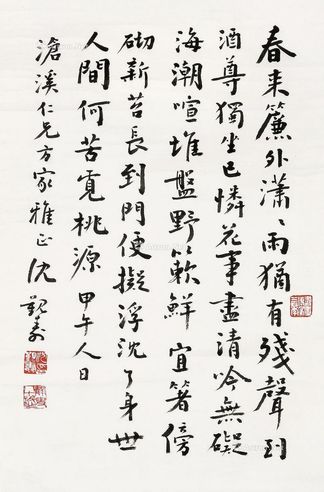 春来簾外瀟〻雨猶有殘聲到
酒尊獨坐已憐花事盡清吟無礙
海潮喧堆盤野蔌鮮宜箸傍
砌新苔長到門便擬浮沈了身世
人間何苦覓桃源 甲午人日
滄溪仁兄方家雅正 沈覲壽